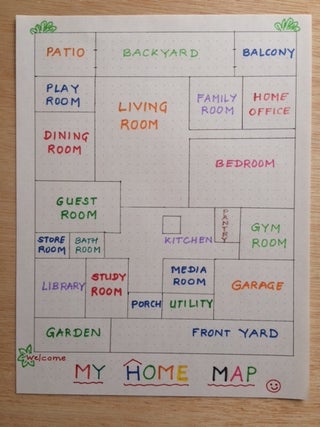 PATIO
BACKYARD
BALCONY
PLAY
ROOM
LIVING
ROOM
FAMILY
ROOM
HOME
OFFICE
DINING
ROOM
BEDROOM
GUEST
ROOM
PANTRY
KITCHEN
GYM
ROOM
STORE
ROOM
BATH
ROOM
LIBRARY
STUDY
ROOM
MEDIA
ROOM
GARAGE
PORCH
UTILITY
GARDEN
FRONT YARD
welcome
MY HOME MAP